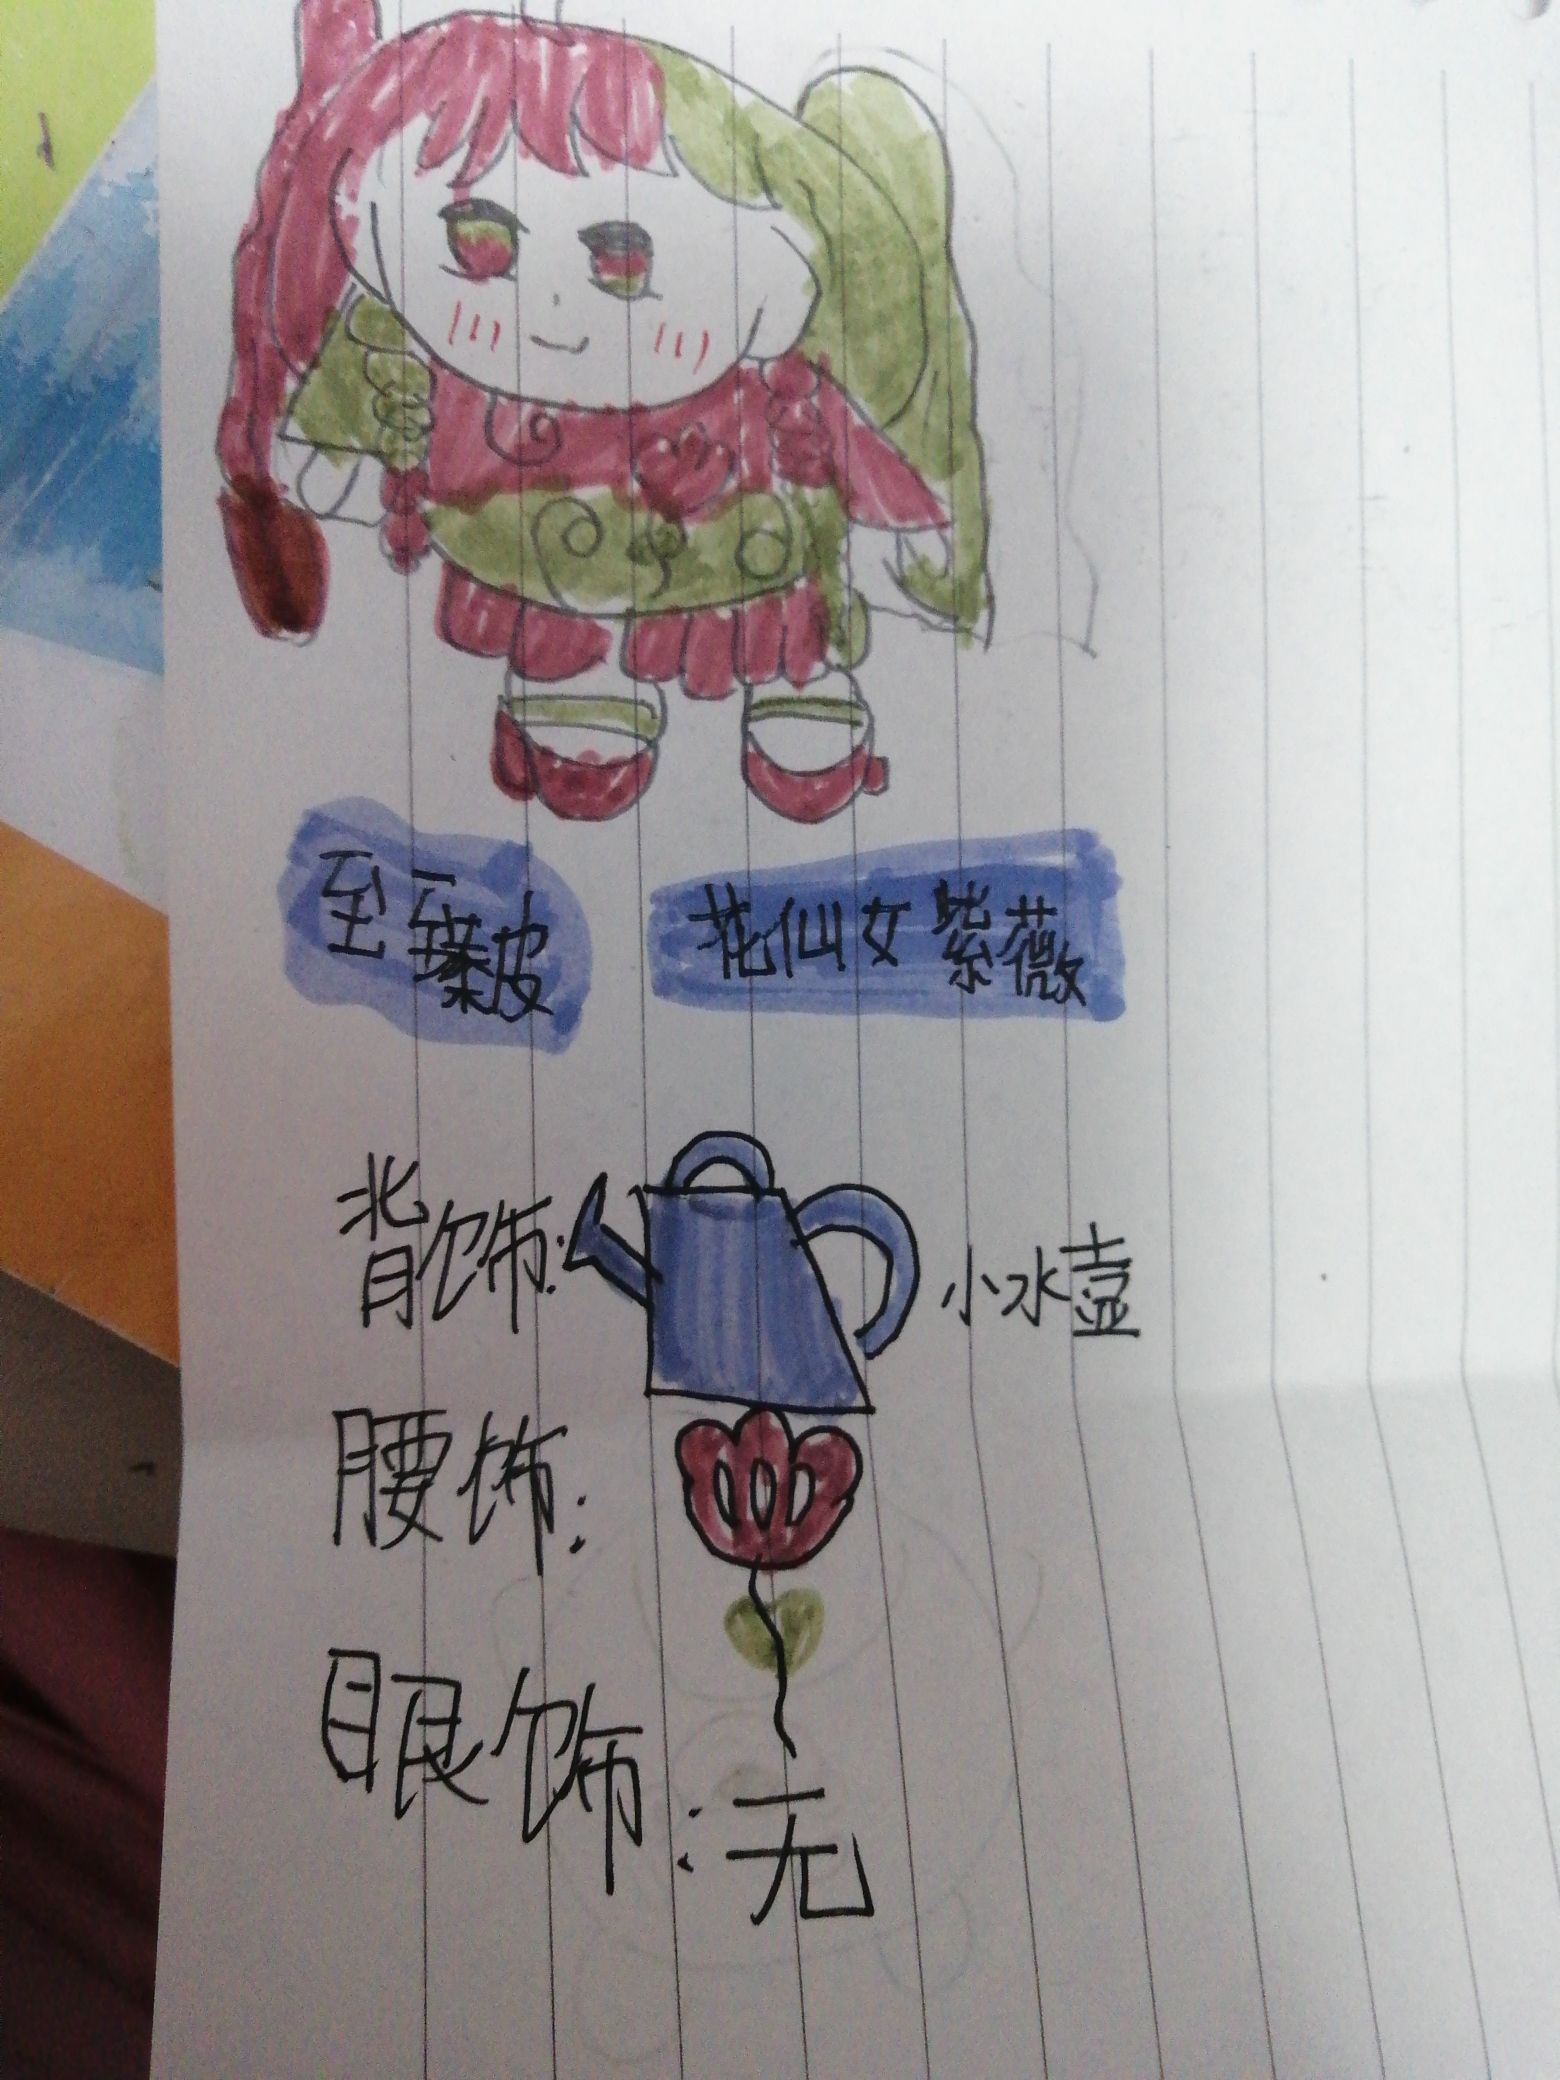 至臻皮
花仙女紫薇
背饰:
小水壶
腰饰:
眼饰:无